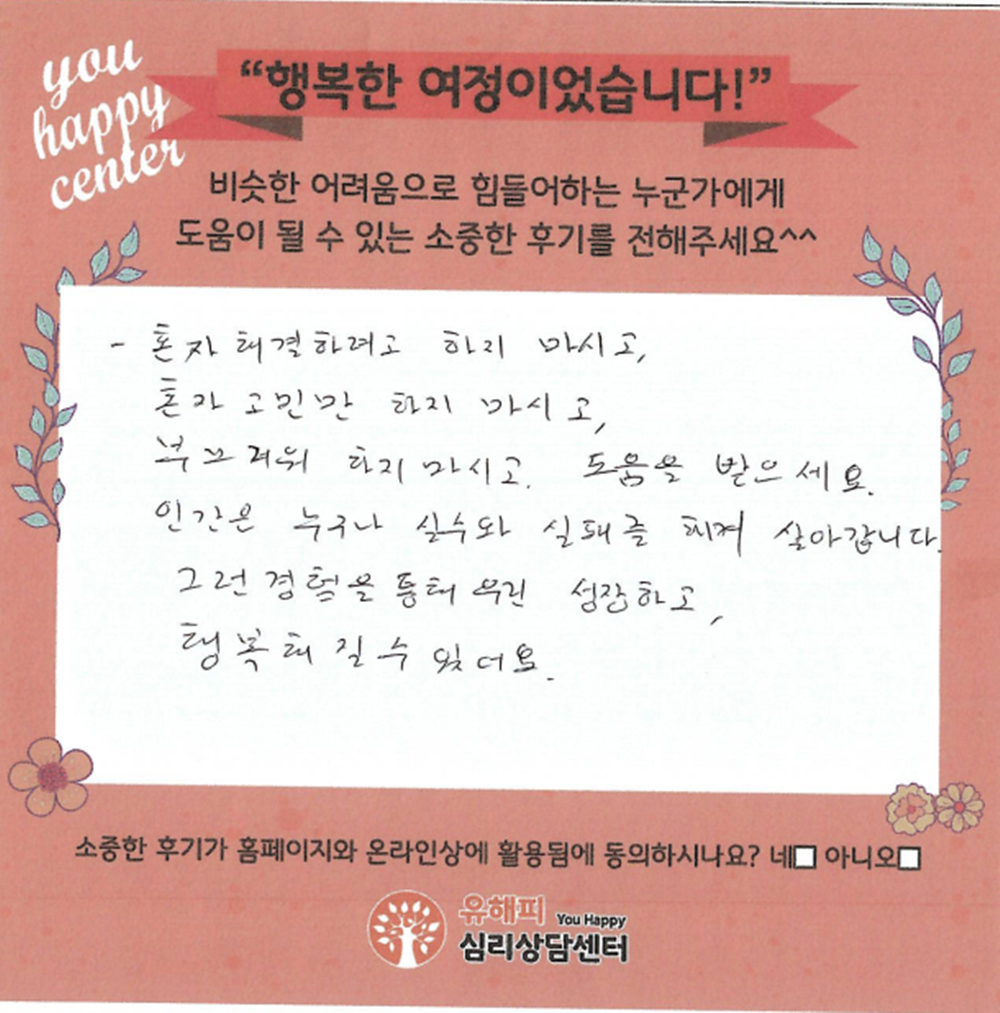 you
happy
center
“행복한 여정이었습니다!”
비슷한 어려움으로 힘들어하는 누군가에게
도움이 될 수 있는 소중한 후기를 전해주세요^^
- 혼자 해결하려고 하지 마시고,
혼자 고민만 하지 마시고,
부끄러워 하지 마시고. 도움을 받으세요.
인간은 누구나 실수와 실패를 하며 살아갑니다.
그런 경험을 통해 우린 성장하고,
행복해 질 수 있더요.
소중한 후기가 홈페이지와 온라인상에 활용됨에 동의하시나요? 네□ 아니오□
유해피 You Happy
심리상담센터